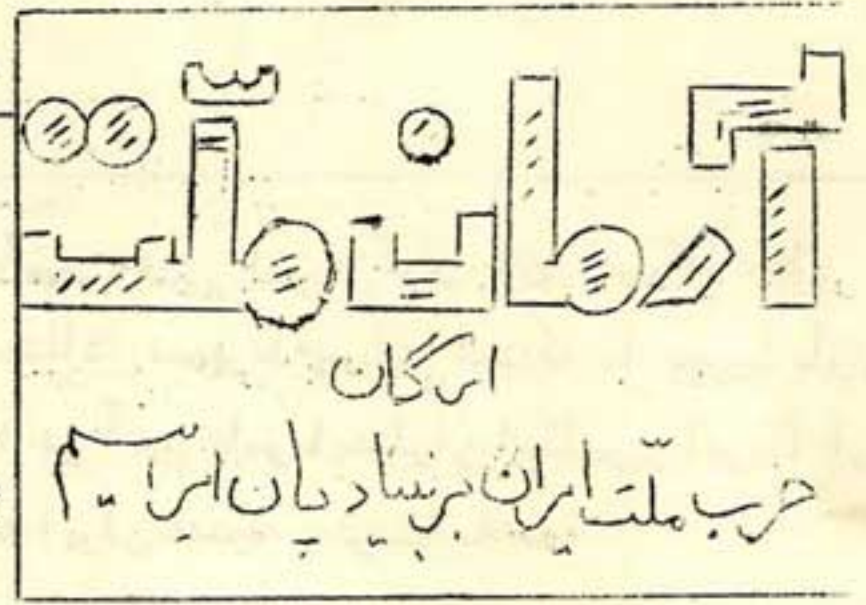 آرمان ملّت
ارگان
حزب ملّت ایران بر بنیاد پان ایرانیسم